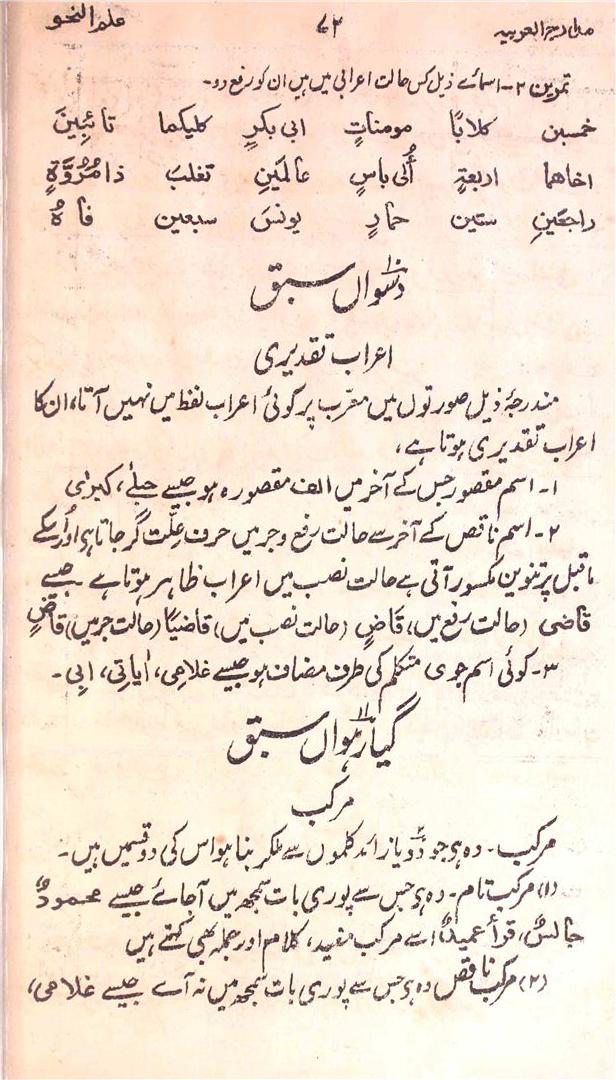 مدارج العربیہ ۷۲ علم النحو
تمرین ۲- اسمائے ذیل کس حالت اعرابی میں ہیں ان کو رفع دو۔
خمسین کلابًا مومناتٍ ابی بکرٍ کلیکما تائِبِینَ
اخاهما اربعةٍ أُلی باسٍ عالمَینِ تغلبَ ذا مُرُوَّةٍ
راجعَینِ ستین حمادٍ یونسَ سبعین فاهُ
دسواں سبق ۱۰
اعراب تقدیری
مندرجۂ ذیل صورتوں میں معرب پر کوئی اعراب لفظ میں نہیں آتا، ان کا
اعراب تقدیری ہوتا ہے،
۱- اسم مقصور جس کے آخر میں الف مقصورہ ہو جیسے حبلےٰ، کبریٰ
۲- اسم ناقص کے آخر سے حالت رفع و جر میں حرف علّت گر جاتا ہی اور اُسکے
ماقبل پر تنوین مکسور آتی ہے حالت نصب میں اعراب ظاہر ہوتا ہے۔ جیسے
قاضی (حالت رفع میں) قَاضٍ (حالت نصب میں) قاضیًا (حالت جر میں) قَاضٍ
۳- کوئی اسم جو ی متکلم کی طرف مضاف ہو جیسے غلامِی، اٰیاتِی، ابِی۔
گیارہواں سبق ۱۱
مرکب
مرکب۔ وہ ہی جو دُو ۲ یا زائد کلموں سے ملکر بنا ہو اس کی دو قسمیں ہیں۔
(۱) مرکب تام۔ وہ ہی جس سے پوری بات سمجھ میں آجائے جیسے محمودٌ
جالسٌ، قرأ عمیدٌ اسے مرکب مفید، کلام اور جملہ بھی کہتے ہیں
(۲) مرکب ناقص وہ ہی جس سے پوری بات سمجھ میں نہ آے جیسے غلامی،